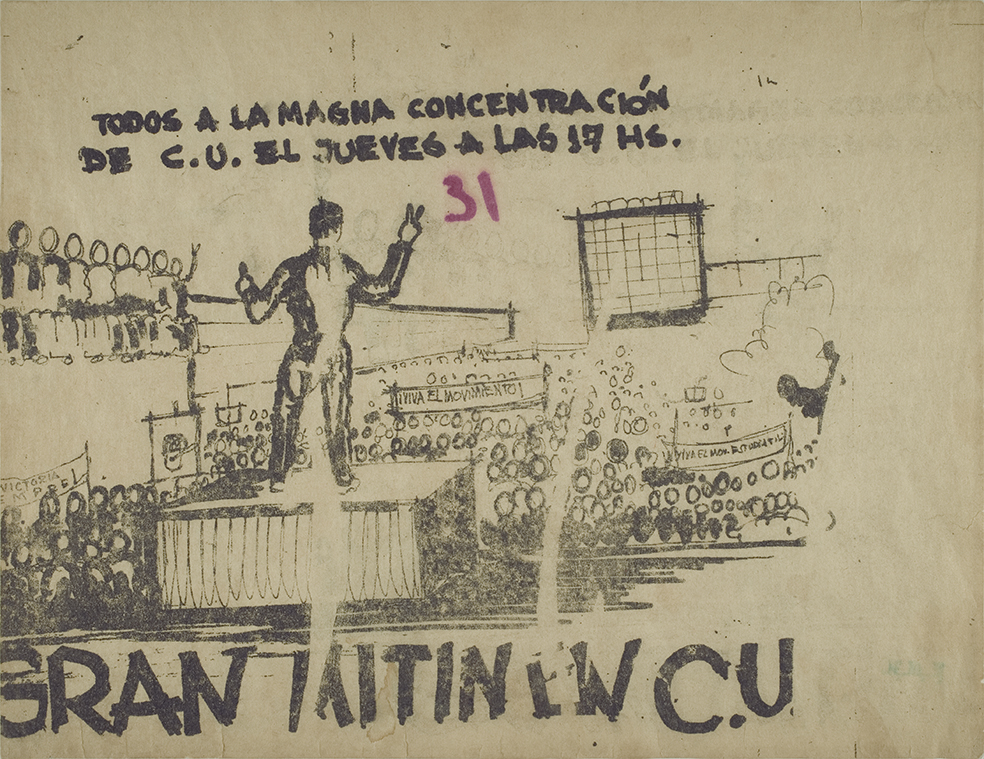 TODOS A LA MAGNA CONCENTRACIÓN
DE C.U. EL JUEVES A LAS 17 HS.
31
¡VIVA EL MOVIMIENTO!
VIVA EL MOV. ESTUDIANTIL
VICTORIA
GRAN MITIN EN C.U.